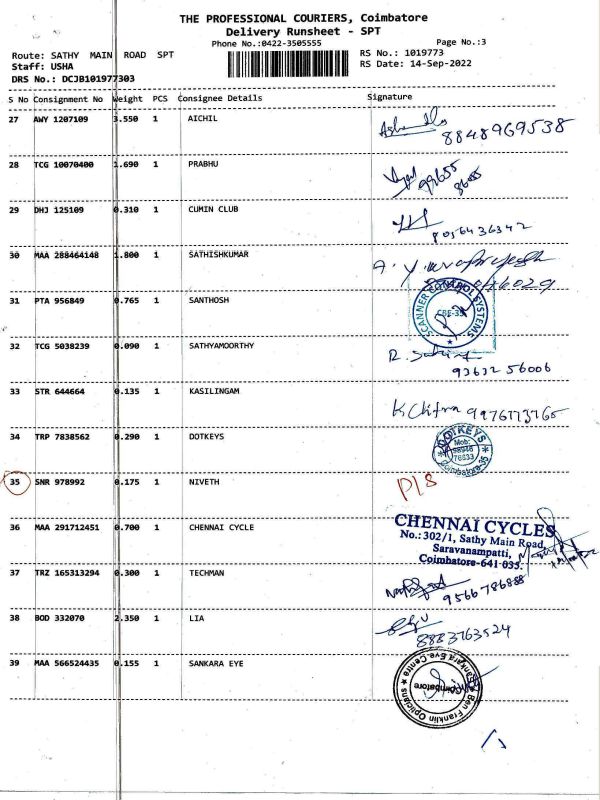 THE PROFESSIONAL COURIERS, Coimbatore
Delivery Runsheet - SPT
Phone No.:0422-3505555 Page No.:3
Route: SATHY MAIN ROAD SPT RS No.: 1019773
Staff: USHA RS Date: 14-Sep-2022
DRS No.: DCJB101977303
S No Consignment No Weight PCS Consignee Details Signature
27 AWY 1207109 3.550 1 AICHIL
8848969538
28 TCG 10070400 1.690 1 PRABHU
99655
29 DHJ 125109 0.310 1 CUMIN CLUB
8056436342
30 MAA 288464148 1.800 1 SATHISHKUMAR
31 PTA 956849 0.765 1 SANTHOSH
SCANNER CONTROL SYSTEMS
CBE-35
32 TCG 5038239 0.090 1 SATHYAMOORTHY
93632 56006
33 STR 644664 0.135 1 KASILINGAM
K Chitra
34 TRP 7838562 0.290 1 DOTKEYS
DOTKEYS
Mob:
98946
76633
Coimbatore-35
35 SNR 978992 0.175 1 NIVETH
P/S
36 MAA 291712451 0.700 1 CHENNAI CYCLE
CHENNAI CYCLES
No.: 302/1, Sathy Main Road,
Saravanampatti,
Coimbatore-641 035.
37 TRZ 165313294 0.300 1 TECHMAN
9566786888
38 BOD 332070 2.350 1 LIA
8883763524
39 MAA 566524435 0.155 1 SANKARA EYE
Ben Franklin Opticians
Sankara Eye Centre
Coimbatore